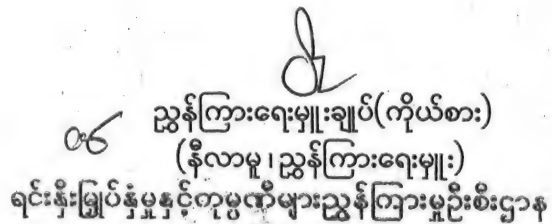 ညွှန်ကြားရေးမှူးချုပ်(ကိုယ်စား)
(နီလာမူ၊ညွှန်ကြားရေးမှူး)
ရင်းနှီးမြှုပ်နှံမှုနှင့်ကုမ္ပဏီများညွှန်ကြားမှုဦးစီးဌာန